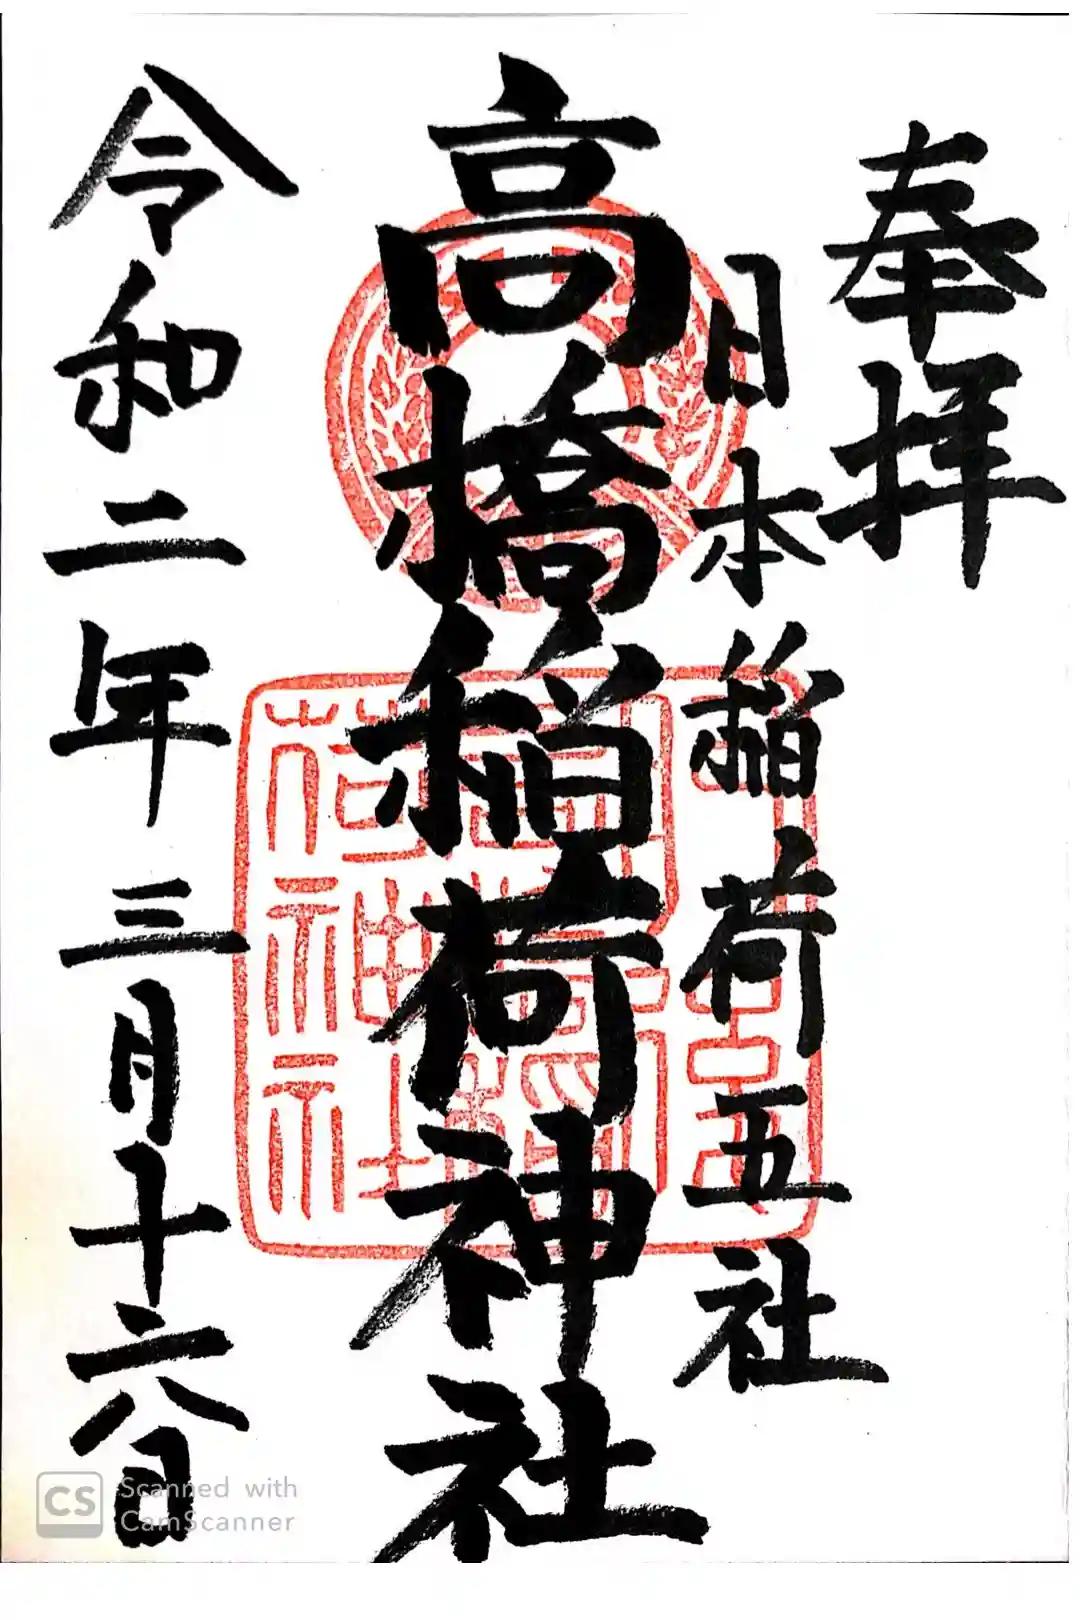 奉拝
日本稲荷五社
高橋稲荷神社
令和二年三月十六日
CS Scanned with
CamScanner